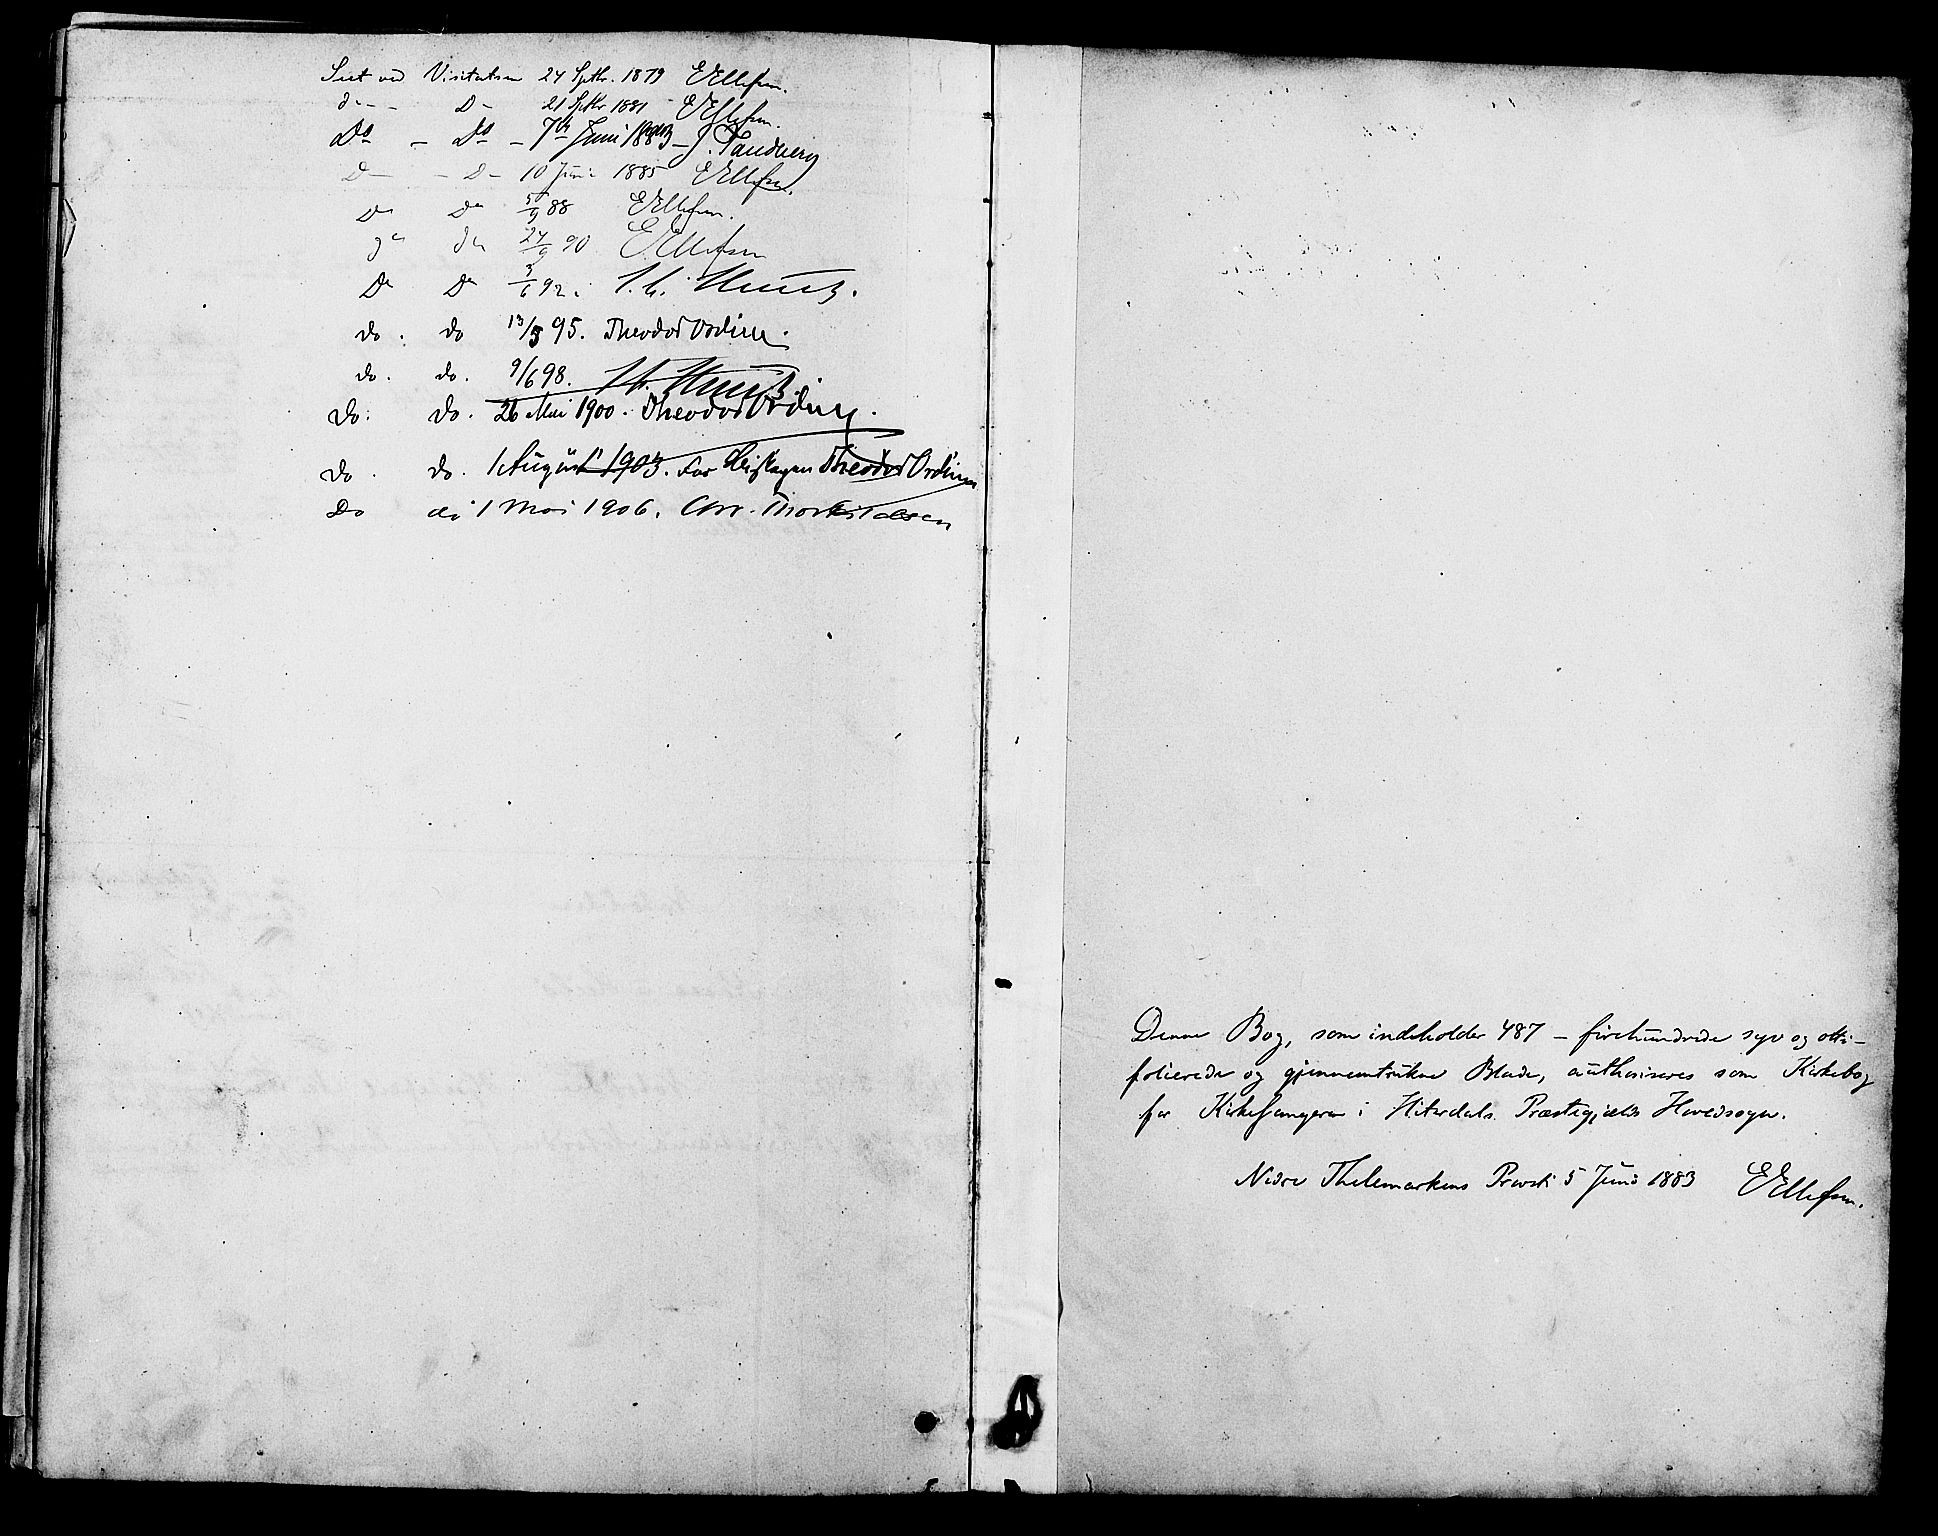 Seet ved Visitatsen 24 Septbr. 1879 EEllefsen.
do - - Do - 21 Septbr 1881 EEllefsen.
Do - Do - 7de Juni 1883 - J. Tandberg
Do - - Do - 10 Juni 1885 EEllefsen.
Do Do 5/9 88 EEllefsen.
do do 24/9 90 EEllefsen
Do Do 3/6 92.
do. do 13/5 95. Theodor Ording.
do. do. 9/6 98.
Do. Do. 26 Mai 1900. Theodor Ording.
do. do. 1 August 1903. For Theodor Ording
Do do 1 Mai 1906. Chr. Thorkildsen
Denne Bog, som indeholder 487 - firehundrede syv og otti -
folierede og gjennemtrukne Blade, authoriseres som Kirkebog
for Kirkesangeren i Hiterdals Præstegjælds Hovedsogn.
Nedre Thelemarkens Provsti 5 Juni 1883 EEllefsen.